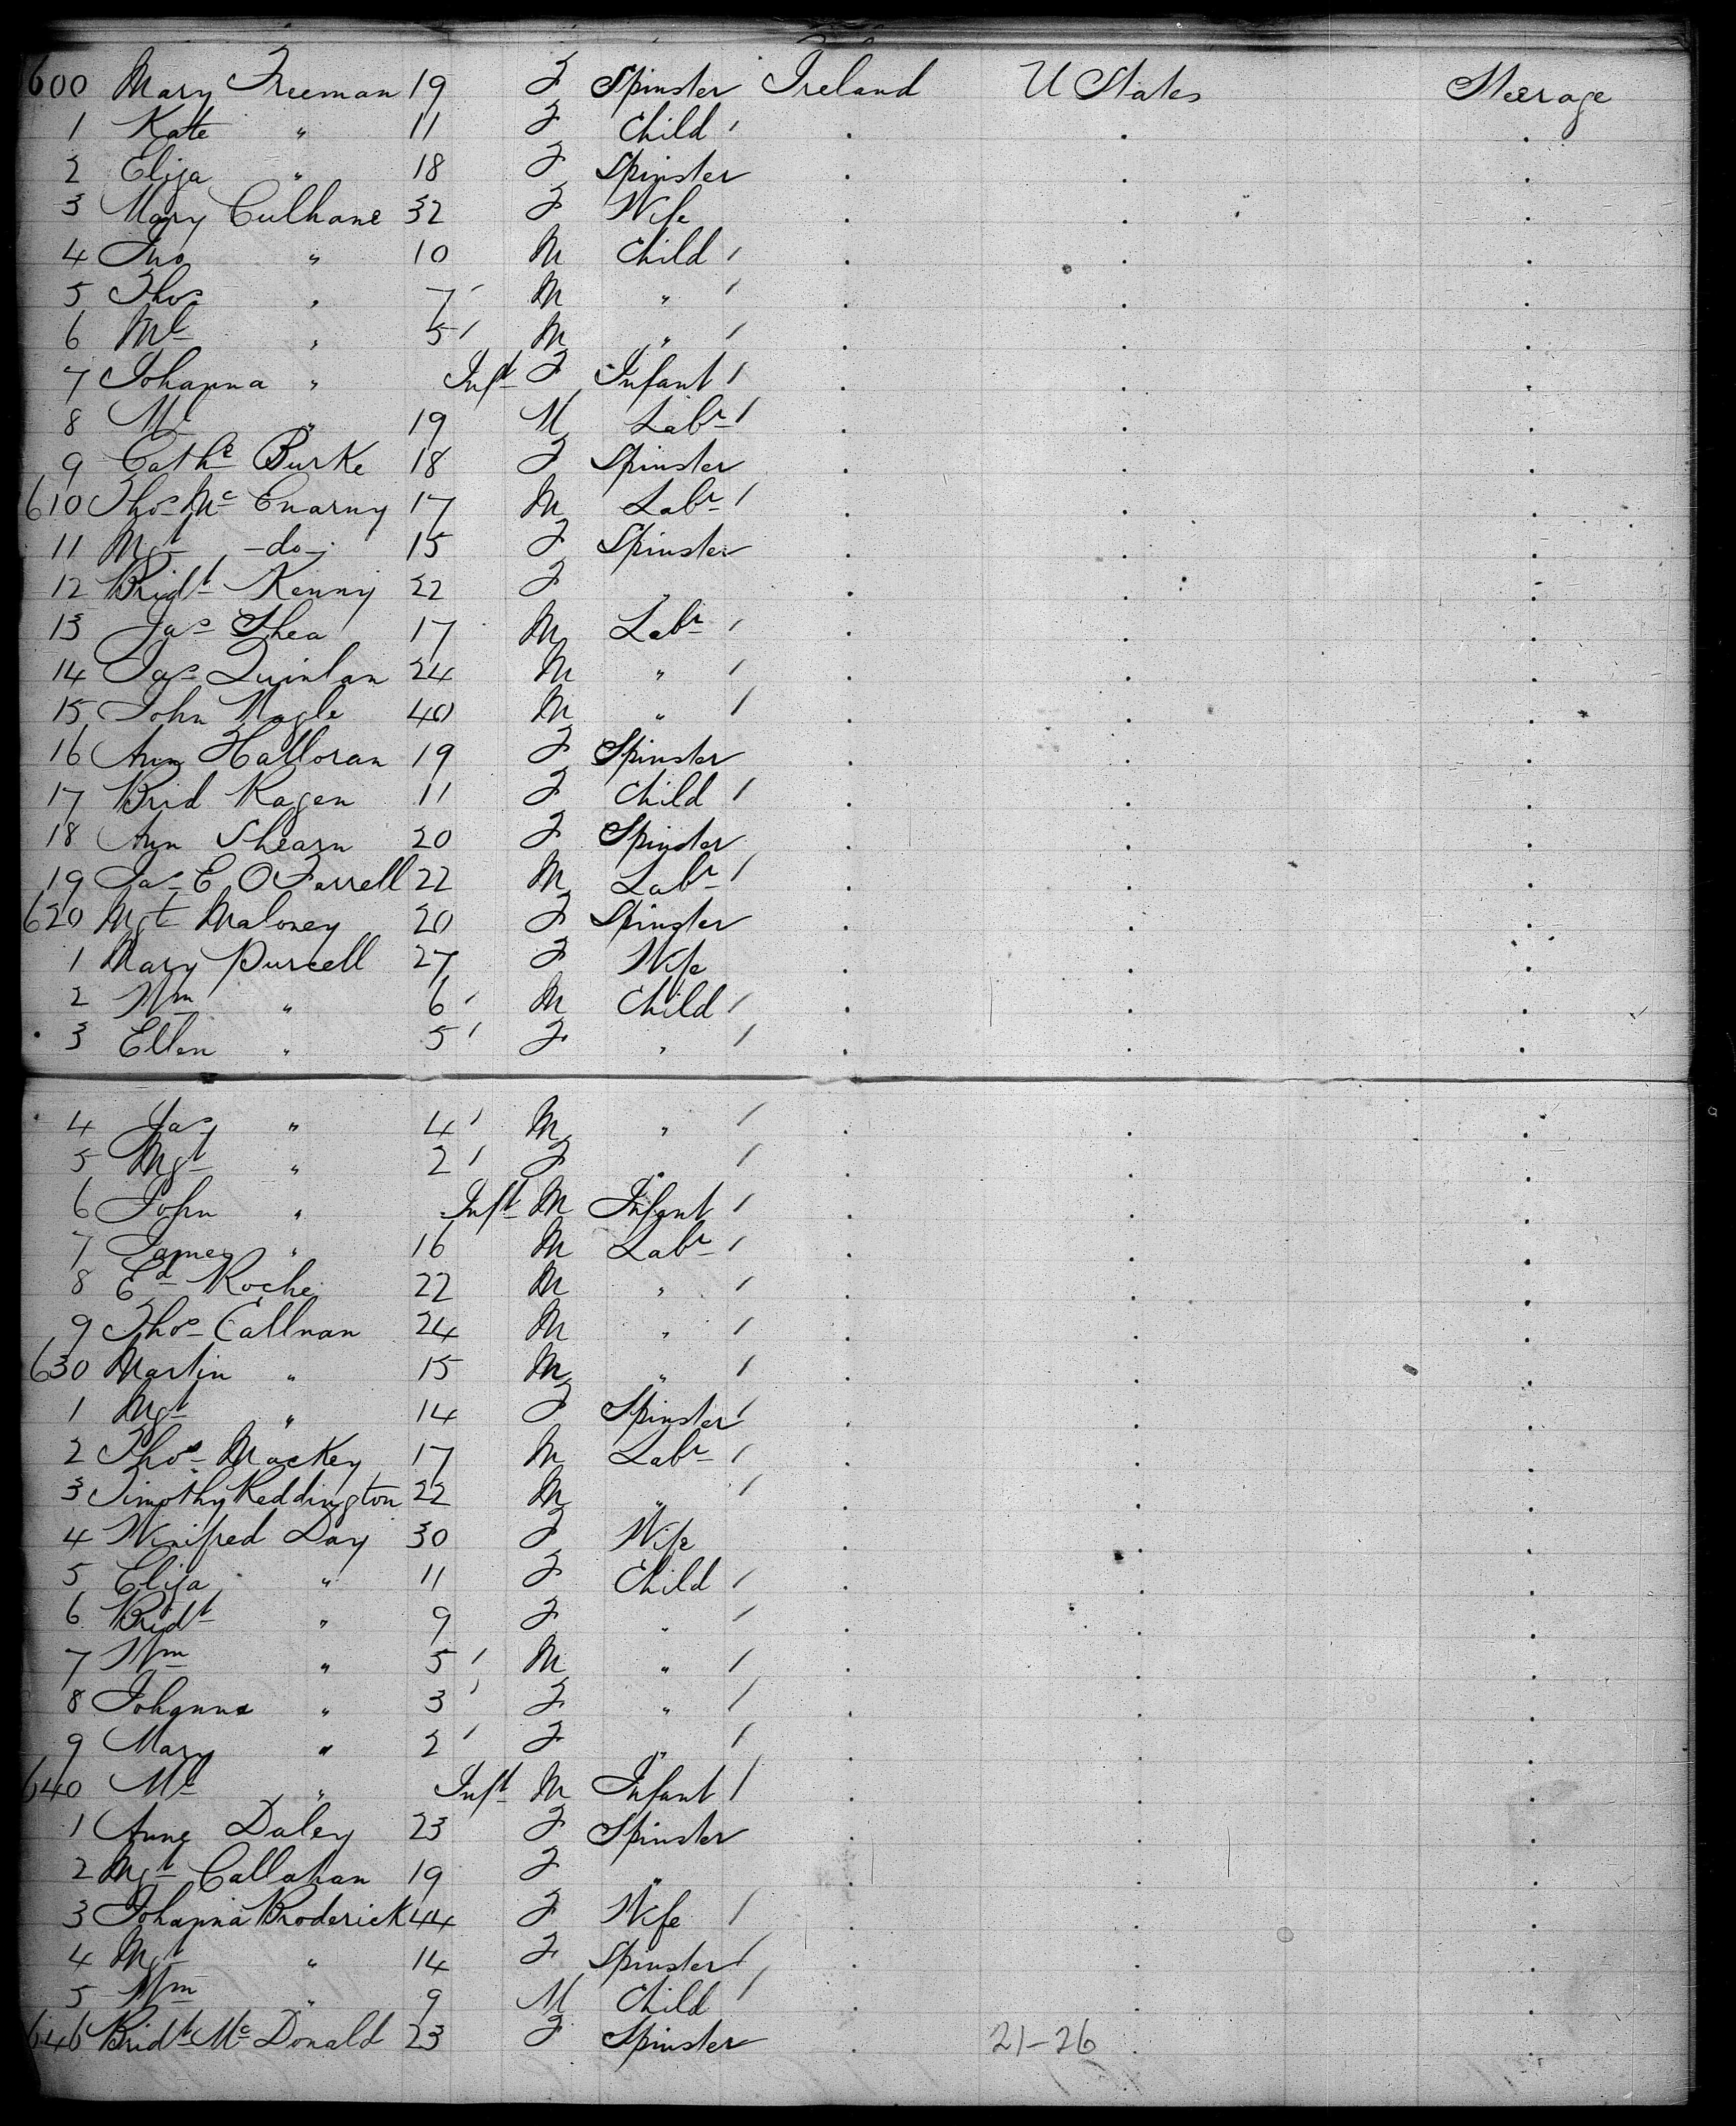 600 Mary Freeman 19 F Spinster Ireland U States Steerage
1 Kate " 11 F Child
2 Eliza " 18 F Spinster
3 Mary Culhane 32 F Wife
4 Jno " 10 M Child
5 Thos " 7 M "
6 Ml " 5 M "
7 Johanna " Inft F Infant
8 Ml " 19 M Labr
9 Cathe Burke 18 F Spinster
610 Thos Mc Enarny 17 M Labr
11 Mgt -do- 15 F Spinster
12 Bridt Kenny 22 F "
13 Jas Shea 17 M Labr
14 Jas Quinlan 24 M "
15 John Nagle 40 M "
16 Ann Halloran 19 F Spinster
17 Brid Ragen 11 F Child
18 Ann Shearn 20 F Spinster
19 Jas E O Farrell 22 M Labr
620 Mgt Maloney 20 F Spinster
1 Mary Purcell 27 F Wife
2 Wm " 6 M Child
3 Ellen " 5 F "
4 Jas " 4 M "
5 Mgt " 2 F "
6 John " Inft M Infant
7 James " 16 M Labr
8 Ed Roche 22 M "
9 Thos Callnan 24 M "
630 Martin " 15 M "
1 Mgt " 14 F Spinster
2 Thos Mackey 17 M Labr
3 Timothy Reddington 22 M "
4 Winifred Day 30 F Wife
5 Eliza " 11 F Child
6 Bridt " 9 F "
7 Wm " 5 M "
8 Johanna " 3 F "
9 Mary " 2 F "
640 Ml " Inft M Infant
1 Anne Daley 23 F Spinster
2 Mgt Callahan 19 F "
3 Johanna Broderick 44 F Wife
4 Mgt " 14 F Spinster
5 Wm " 9 M Child
646 Bridt Mc Donald 23 F Spinster 21-26